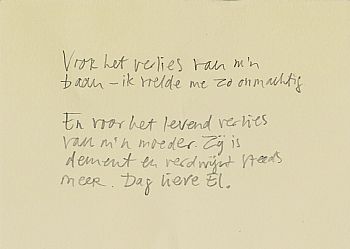 Voor het verlies van m'n
baan – ik voelde me zo onmachtig
En voor het levend verlies
van m'n moeder. Zij is
dement en verdwijnt steeds
meer. Dag lieve El.